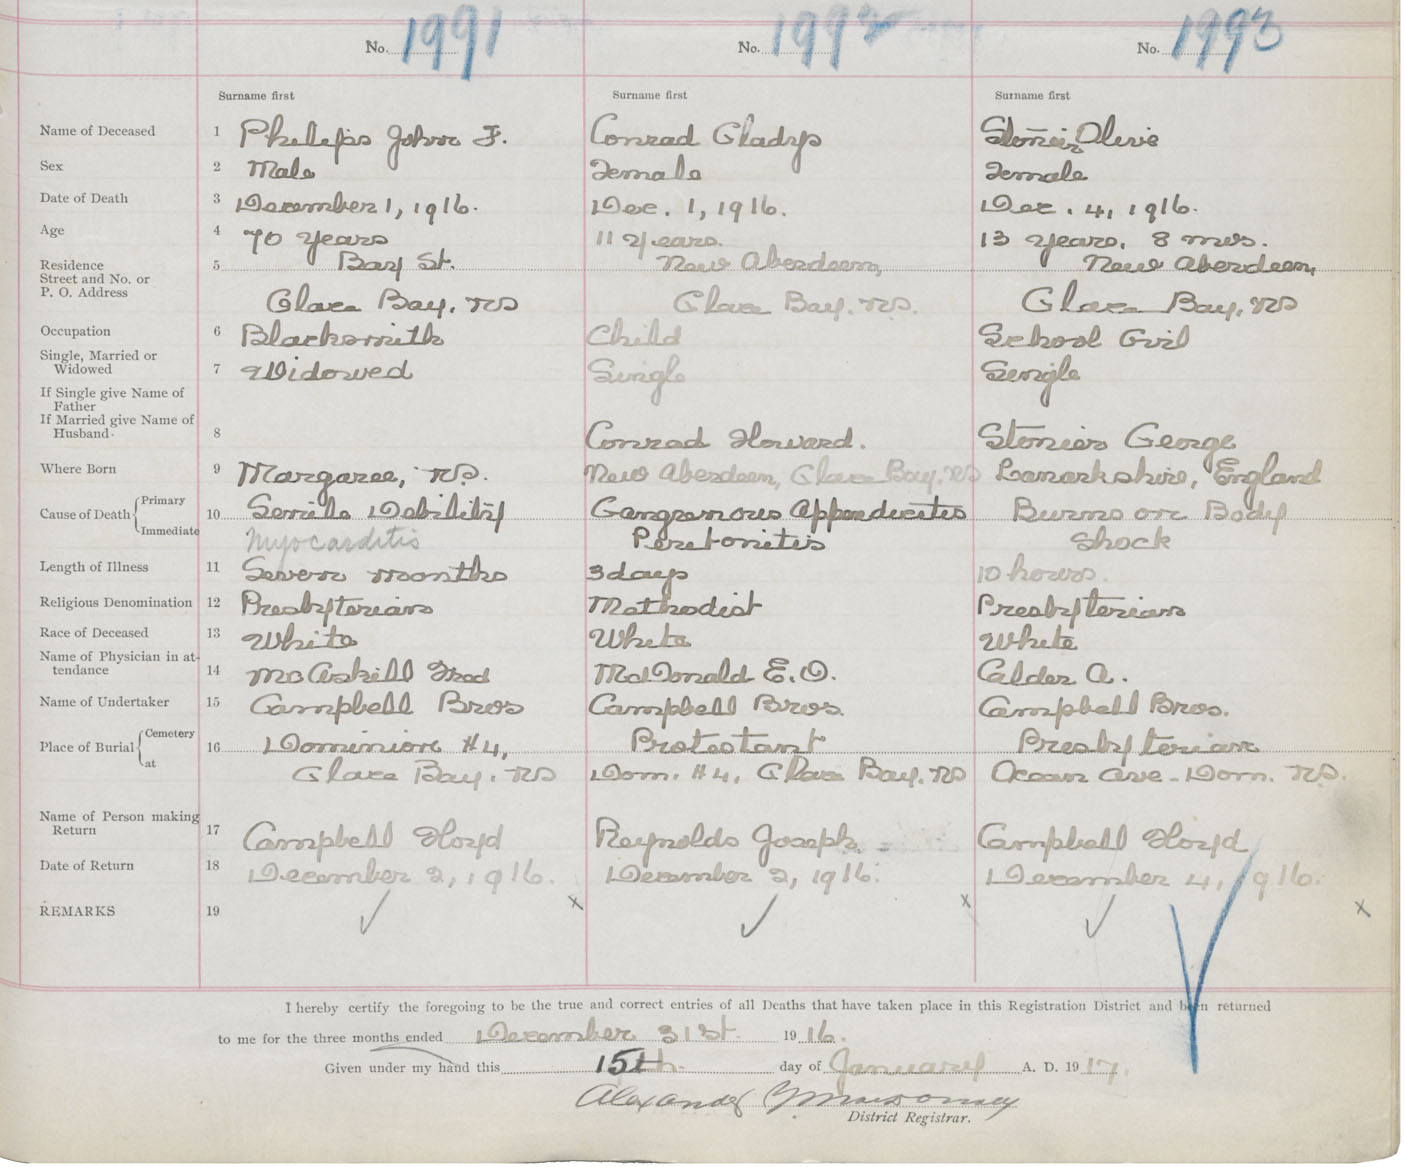 No. 1991 No. 1992 No. 1993
Surname first Surname first Surname first
Name of Deceased 1 Philips John F. Conrad Gladys Stonier Olive
Sex 2 Male Female Female
Date of Death 3 December 1, 1916. Dec. 1, 1916. Dec. 4, 1916.
Age 4 70 years 11 years. 13 years, 8 mos.
Residence 5 Bay St. New Aberdeen, New Aberdeen,
Street and No. or
P. O. Address Glace Bay, NS Glace Bay, N.S. Glace Bay, NS
Occupation 6 Blacksmith Child School Girl
Single, Married or
Widowed 7 Widowed Single Single
If Single give Name of
Father
If Married give Name of
Husband. 8 Conrad Howard. Stonier George
Where Born 9 Margaree, N.S. New Aberdeen, Glace Bay, NS Lanarkshire, England
Cause of Death Primary 10 Senile Debility Gangrenous Appendicitis Burns on Body
Immediate Myocarditis Peritonitis Shock
Length of Illness 11 Seven months 3 days 10 hours.
Religious Denomination 12 Presbyterian Methodist Presbyterian
Race of Deceased 13 White White White
Name of Physician in at-
tendance 14 McAskill Fred McDonald E.O. Calder A.
Name of Undertaker 15 Campbell Bros Campbell Bros. Campbell Bros.
Place of Burial Cemetery 16 Dominion #4, Protestant Presbyterian
at Glace Bay, NS Dom. #4, Glace Bay, NS Ocean Ave - Dom. N.S.
Name of Person making
Return 17 Campbell Floyd Reynolds Joseph Campbell Floyd
Date of Return 18 December 2, 1916. December 2, 1916. December 4, 1916.
REMARKS 19
I hereby certify the foregoing to be the true and correct entries of all Deaths that have taken place in this Registration District and been returned
to me for the three months ended December 31st. 1916.
Given under my hand this 15th day of January A. D. 1917.
Alexander
District Registrar.